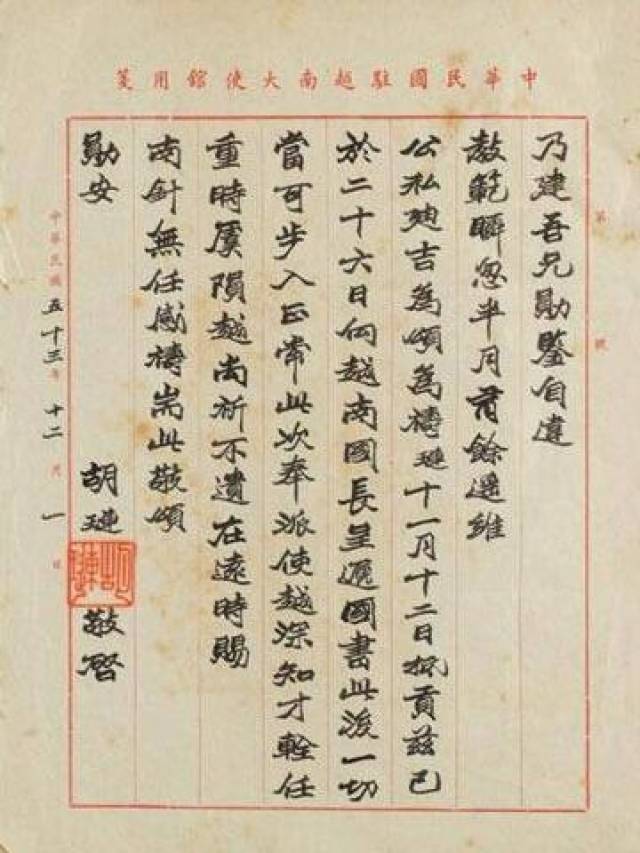 中華民國駐越南大使館用箋
第 號
乃建吾兄勛鑒自違
教範瞬忽半月有餘遙維
公私迪吉為頌為禱璉十一月十二日抵貢茲已
於二十六日向越南國長呈遞國書此後一切
當可步入正常此次奉派使越深知才輕任
重時虞隕越尚祈不遺在遠時賜
南針無任感禱耑此敬頌
勛安 胡璉 敬啓
中華民國五十三年十二月一日